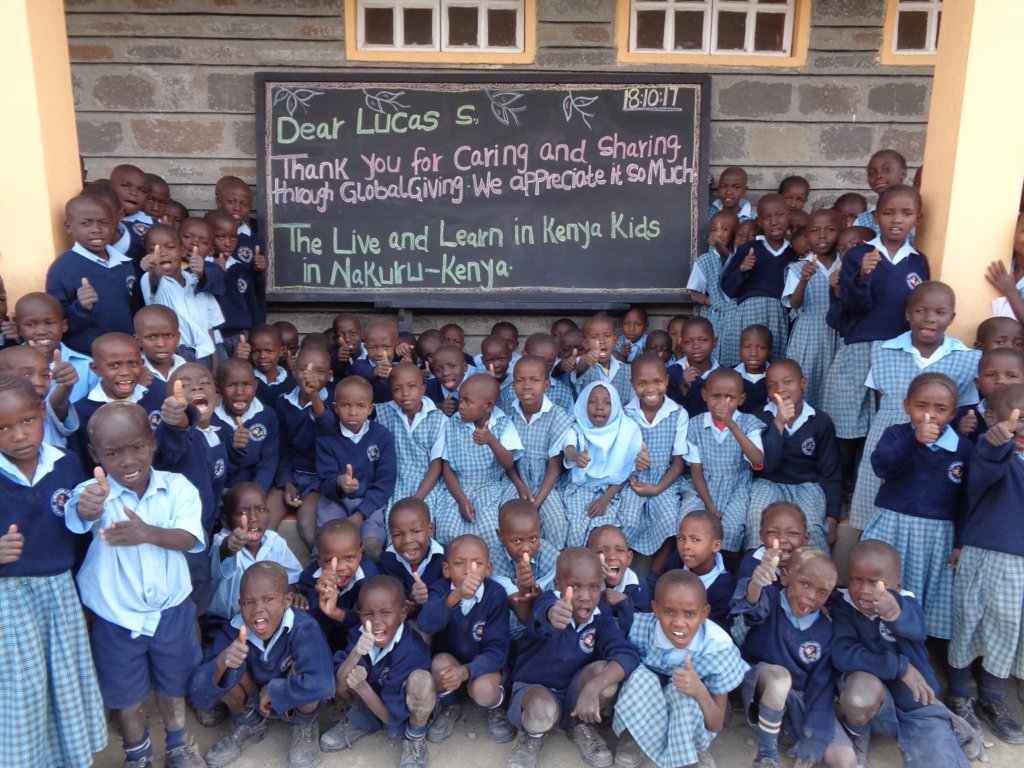 18:10:17
Dear Lucas S.,
Thank you for Caring and Sharing
through GlobalGiving. We appreciate it so Much
The Live and Learn in Kenya Kids
in Nakuru-Kenya.